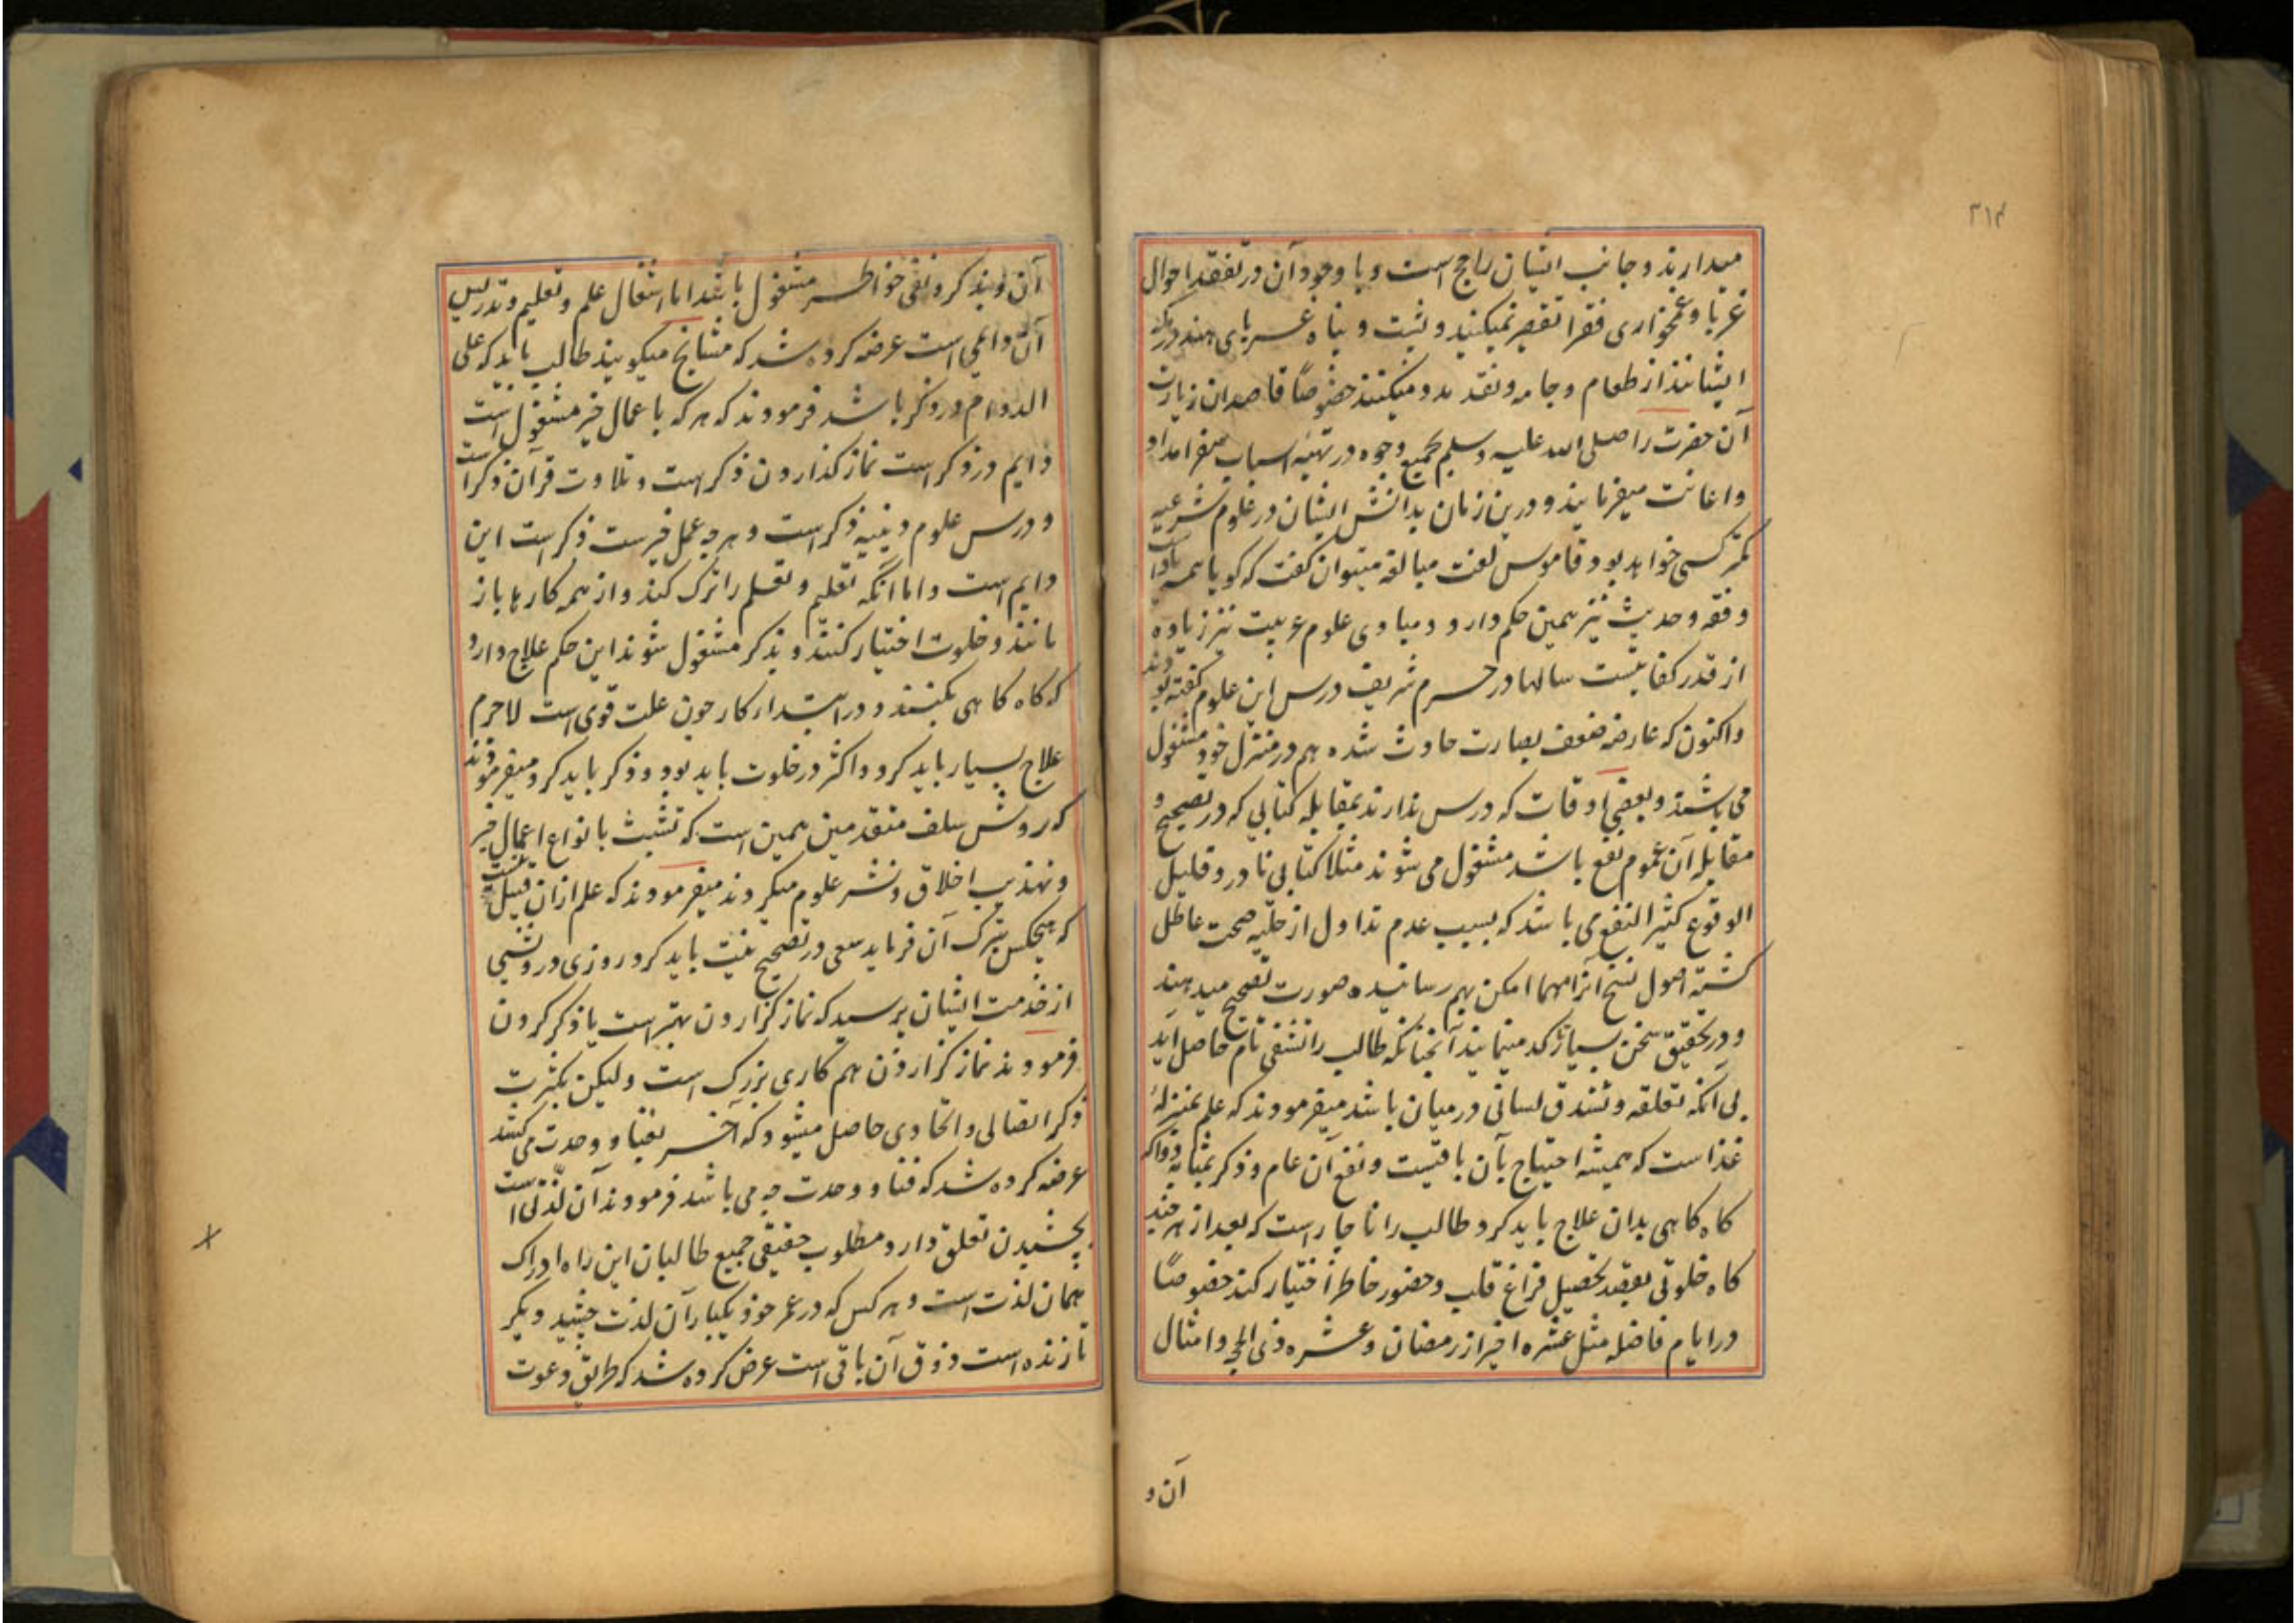 ۳۱۴
میدارند و جانب ایشان راجح است و با وجود آن در تفقد احوال
غربا و غمخواری فقرا تقصیر نمیکنند و پشت و پناه غربای هند در مکه
ایشانند از طعام و جامه و نقد مدد میکنند خصوصًا قاصدان زیارت
آن حضرت را صلی الله علیه و سلم بجمیع وجوه در تهیه اسباب سفر امداد
و اعانت میفرمایند و درین زمان بدانش ایشان در علوم شرعیه
کمتر کسی خواهد بود قاموس لغت مبالغه میتوان گفت که گویا همه یاد دارند
و فقه و حدیث نیز همین حکم دارد و مبادی علوم عربیت نیز زیاده
از قدر کفایتست سالها در حرم شریف درس این علوم گفته بودند
و اکنون که عارضه ضعف بصارت حادث شده هم در منزل خود مشغول
می باشند و بعضی اوقات که درس ندارند بمقابله کتابی که در تصحیح و
مقابله آن عموم نفع باشد مشغول می شوند مثلا کتابی نادر و قلیل
الوقوع کثیر النفع می باشد که بسبب عدم تداول از حلیه صحت عاطل
گشته اصول نسخ آنرا مهما امکن بهم رسانیده صورت تصحیح میدهند
و در تحقیق سخن بسیار کد مینمایند آنچنانکه طالب را تشفی تام حاصل آید
بی آنکه تقلقه و تشدق لسانی در میان باشد میفرمودند که علم بمنزلهٔ
غذاست که همیشه احتیاج بآن باقیست و نفع آن عام و ذکر بمثابه دوا که
گاه گاهی بدان علاج باید کرد طالب را ناچار است که بعد از هر چند
گاه خلوتی بقصد تحصیل فراغ قلب و حضور خاطر اختیار کند خصوصًا
در ایام فاضله مثل عشره اخیر از رمضان و عشره ذی الحجه و امثال
آن و
آن و بذکر و نفی خواطر مشغول باشد اما اشتغال علم و تعلیم و تدریس
آن دایمی است عرضه کرده شد که مشایخ میگویند طالب باید که علی
الدوام در ذکر باشد فرمودند که هر که باعمال خیر مشغول است
دایم در ذکر است نماز گذاردن ذکر است و تلاوت قرآن ذکر است
و درس علوم دینیه ذکر است و هر چه عمل خیر ست ذکر است این
دایم است و اما آنکه تعلیم و تعلم را ترک کند و از همه کارها باز
مانند و خلوت اختیار کنند و بذکر مشغول شوند این حکم علاج دارد
که گاه گاهی بکنند و در ابتداء کار چون علت قوی است لاجرم
علاج بسیار باید کرد و اکثر در خلوت باید بود و ذکر باید کرد و میفرمودند
که روش سلف متقدمین همین است که تشبث بانواع اعمال خیر
و تهذیب اخلاق و نشر علوم میکردند میفرمودند که علم از آن قبیل نیست
که هیچکس بترک آن فرماید سعی در تصحیح نیت باید کرد روزی درویشی
از خدمت ایشان پرسید که نماز گزاردن بهتر است یا ذکر کردن
فرمودند نماز گزاردن هم کاری بزرگ است و لیکن بکثرت
ذکر اتصالی و اتحادی حاصل میشود که آخر بفنا و وحدت می کشد
عرضه کرده شد که فنا و وحدت چه می باشد فرمودند آن لذتی است
بچشیدن تعلق دارد مطلوب حقیقی جمیع طالبان این راه ادراک
همان لذت است و هر کس که در عمر خود یکبار آن لذت چشید دیگر
تا زنده است ذوق آن باقی است عرض کرده شد که طریق دعوت